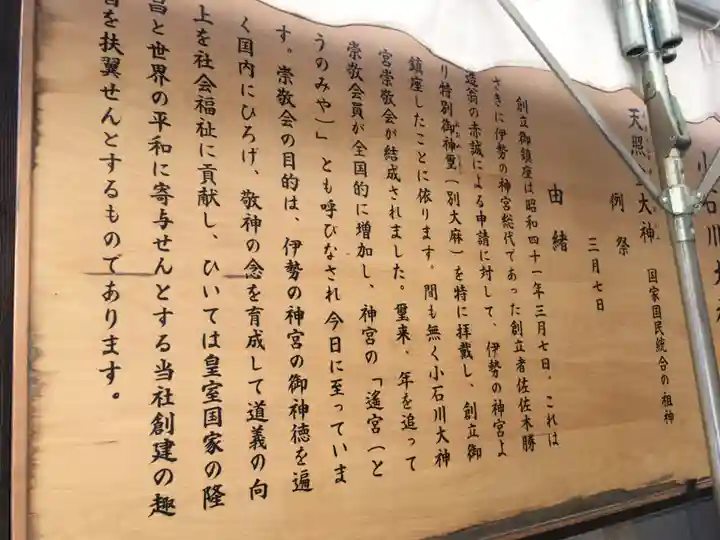 小石川大神
天照 大神 国家国民統合の祖神
例祭 三月七日
由緒
創立御鎮座は昭和四十一年三月七日。これは
さきに伊勢の神宮総代であった創立者佐佐木勝
造翁の赤誠による申請に対して、伊勢の神宮よ
り特別御神璽(別大麻)を特に拝戴し、創立御
鎮座したことに依ります。間も無く小石川大神
宮崇敬会が結成されました。璽来、年を追って
崇敬会員が全国的に増加し、神宮の「遙宮(と
うのみや)」とも呼びなされ今日に至っていま
す。崇敬会の目的は、伊勢の神宮の御神徳を遍
く国内にひろげ、敬神の念を育成して道義の向
上を社会福祉に貢献し、ひいては皇室国家の隆
昌と世界の平和に寄与せんとする当社創建の趣
旨を扶翼せんとするものであります。